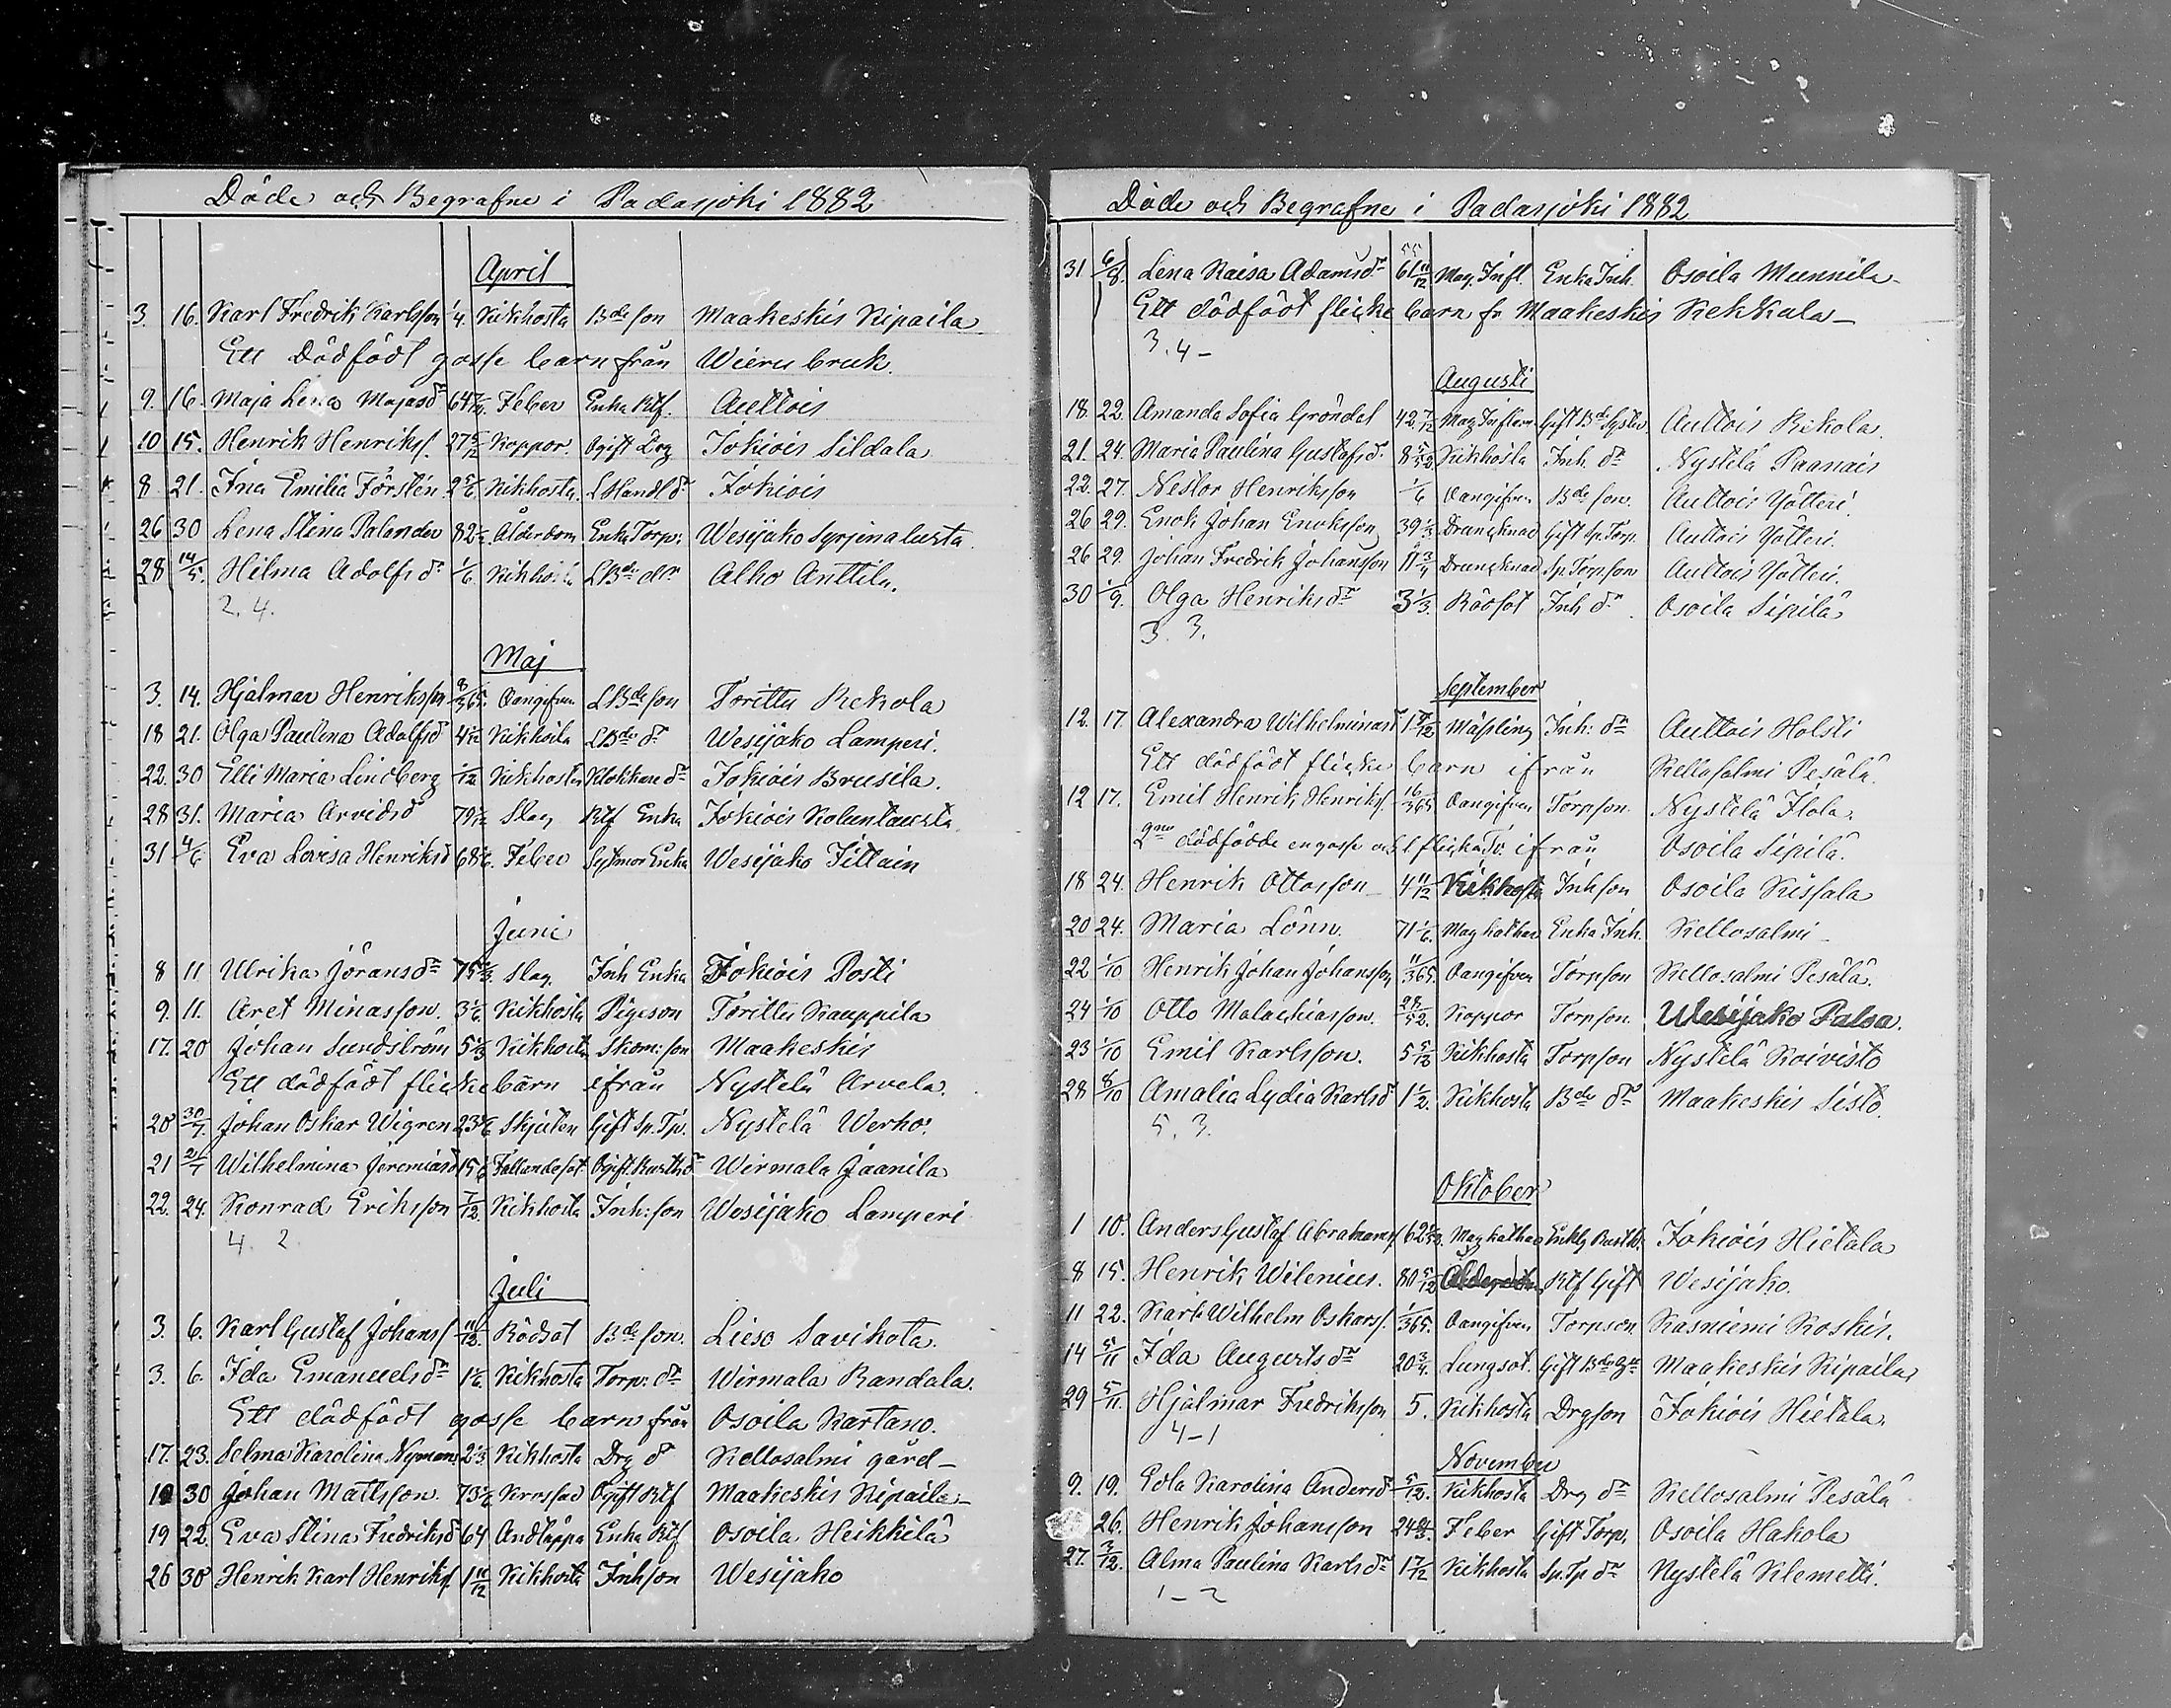 Döde och Begrafne i Padasjoki 1882
April
3. 16. Karl Fredrik Karlsson 1/4. Kikhosta Bde son Maakeskis Kipaila
Ett dödfödt gosse barn från Wieru bruk.
9. 16. Maja Lena Majasdr 64 Feber Enka Rtf. Auttois
10 15. Henrik Henriks. 27 Koppor. Ogift Drg Jokiois Sildala
8 21. Ina Emilia Förstén 2 5/6 Kikhosta. LHandl dr Jokiois
26 30 Lena Stina Palander 82 Ålderdom Enka Torp: Wesijako Syrjänalusta
28 14/5. Hilma Adolfsdr 1/6 Kikhosta LBde dtr Alho Anttila.
2. 4.
Maj
3. 14. Hjalmar Henriksson 8/365. Oangifven LBde son Torittu Rekola
18 21. Olga Paulina Adolfsd 4 Kikhosta LBde dr Wesijako Lamperi.
22. 30 Elli Maria Lindberg 1/12 Kikhosta Klokkare dr Jokiois Brusila.
28 31. Maria Arvidsd 79 Slag Rtf Enka Jokiois Koluntausta
31 4/6 Eva Lovisa Henriksd 68 1/6. Feber Sytmor Enka Wesijako Tittain
Juni
8 11 Ulrika Jöransdr 75 2/3. Slag. Inh Enka Jokiois Posti
9. 11. Aret Minasson. 3 1/6. Kikhosta Pigeson Toritter Kauppila
17. 20 Johan Sundström 5 1/3 Kikhosta Skom: son Maakeskis
Ett dödfödt flickebarn ifrån Nystelä Arvela.
20 30/7. Johan Oskar Wigren 23 Skjuten Gift Sp. Tp. Nystelä Werho.
21 2/7 Wilhelmina Jeremiasd 15 Fallandesot Ogift Rusth dr Wirmala Jaanila
22. 24. Konrad Eriksson 7/12. Kikhosta Inh: son Wesijako Lamperi
4. 2
Juli
3. 6. Karl Gustaf Johanss 11/12. Rödsot Bde son. Lieso Savikota.
3. 6. Ida Emanuelsdr 1 1/6. Kikhosta Torp: dr Wirmala Randala.
Ett dödfödt gosse barn från Osoila Kartano.
17. 23. Selma Karolina Nyman 2 1/3 Kikhosta Drg dr Kellosalmi gård
19 30 Johan Mattsson. 73 Ogift Rtf Maakeskis Kipaila
19 22. Eva Stina Fredriksdr 64 Andtäppa Enka Rtf Osoila Heikkilä
26 30 Henrik Karl Henriks 1 11/12 Kikhosta Inhson Wesijako
Döde och Begrafne i Padasjoki 1882
31 6/8. Lena Kaisa Adamsdr 61 11/12 55 Mag. Infl. Enka Inh. Osoila Munnila
Ett dödfödt flicke barn fr Maakeskis Kekkala
3. 4
Augusti
18. 22. Amanda Sofia Gröndal 42 7/12 Mag Inflam Gift Bde Syster Auttois Rekola.
21. 24. Maria Paulina Gustafsdr 8 5/52 Kikhosta Inh. dr Nystelä Paanais
22. 27. Nestor Henriksson 1/6 Oangifven Bde son. Auttois Yötteri.
26 29. Enok Johan Enoksson 39 1/3 Drunknad Gift Sp. Torp. Auttois Yötteri.
26 29. Johan Fredrik Johansson 11 3/4 Drunknad Sp. Torpson Auttois Yötteri.
30 1/9. Olga Henriksdr 3 1/3 Rödsot Inh dr Osoila Sipilä
3. 3.
September
12. 17. Alexandra Wilhelminasd 1 7/12 Mässling Inh: dr Auttois Holsti
Ett dödfödt flicke barn ifrån Kellosalmi Pesälä.
12 17. Emil Henrik Henriks. 16/365. Oangifven Torpson. Nystelä Ilola.
2ne dödfödde en gosse och 1 flicka Tv. ifrån Osoila Sipilä.
18 24. Henrik Ottosson 4 11/12 Kikhosta Inhson Osoila Kissala
20 24. Maria Lönn. 71 1/6. Mag kathar Enka Inh. Kellosalmi
22 1/10 Henrik Johan Johansson 11/365. Oangifven Torpson Kellosalmi Pesälä.
24 1/10 Otto Malachiasson. 28/52. Koppor Torpson. Wesijako Palsa.
23 1/10 Emil Karlsson. 5 5/12 Kikhosta Torpson Nystelä Koivisto
28 8/10 Amalia Lydia Karlsd 1 1/2. Kikhosta Bde dr Maakeskis Sistö.
5. 3.
Oktober
1 10. Anders Gustaf Abrahams 62 Mag kathar Enklg Rusth. Jokiois Hietala
8 15. Henrik Wilenius. 80 5/12 Rtf Gift Wesijako.
11 22. Karl Wilhelm Oskars. 1/365. Oangifven Torpson Kasniemi Koskis.
14 5/11 Ida Augustsdr 20 3/4. Lungsot. Gift Bde Maakeskis Kipaila
29 5/11. Hjalmar Fredriksson 5. Kikhosta Drgson Jokiois Hietala.
4-1
November
9. 19. Eola Karolina Andersd 5/12. Kikhosta Drg dr Kellosalmi Pesälä
26. Henrik Johansson 24 Feber Gift Torp. Osoila Hakola
27. 3/12. Alma Paulina Karlsdr 1 7/12 Kikhosta Sp. Tp dr Nystelä Klemetti.
1-2